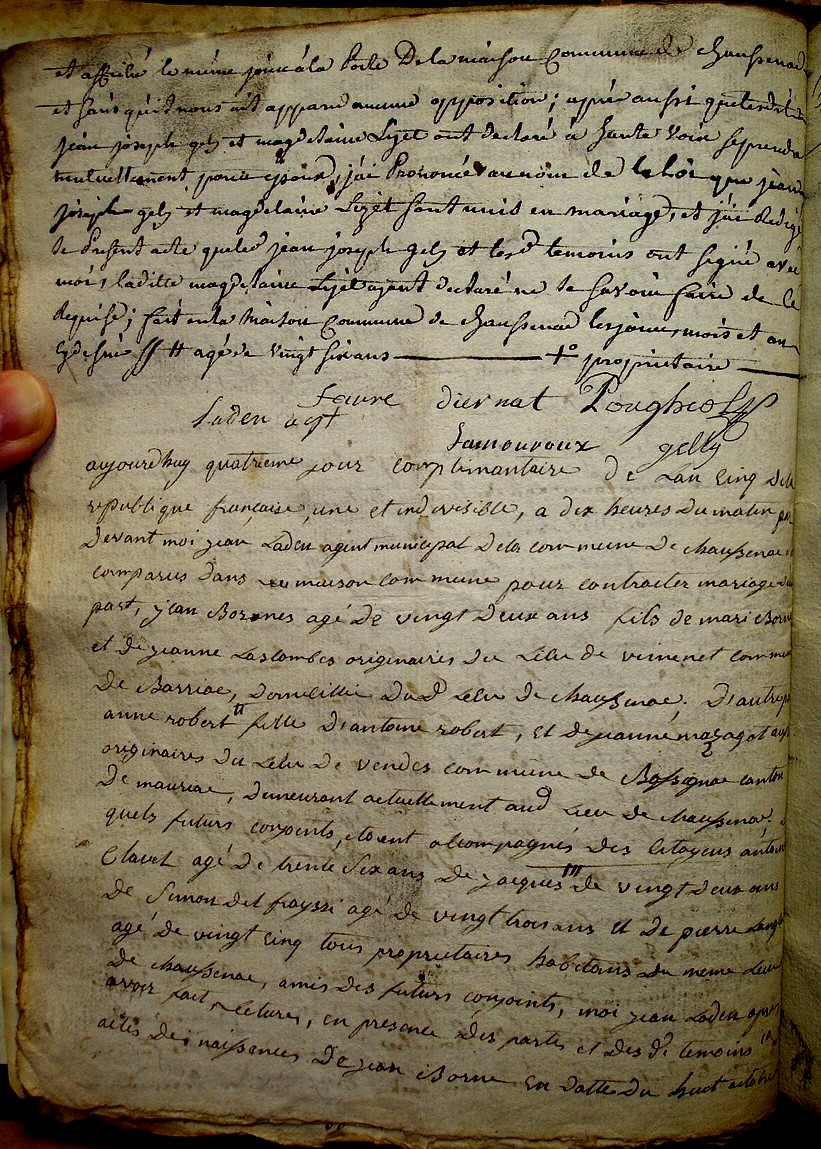 et affiché le même jour à la Porte De la maison Commune de chaussenac
et sans qu'il nous ait apparu aucune opposition; après aussi que lesdits
jean joseph gely et magdelaine Lizet ont declaré à haute voix se prendre
mutuellement pour epoux, j'ai Prononcé au nom de la loi que jean
joseph gely et magdelaine Lizet sont unis en mariage, et j'ai Redigé
le Présent acte que led jean joseph gely et lesd temoins ont signé avec
moi, laditte magdelaine Lizet ayant declaré ne le savoir faire de ce
Requise; fait en la Maison Commune de chaussenac les jour, mois et an
agé de vingt six ans + proprietaire
Laden agt Feuvre diernat
Lamouroux gelly
aujourdhuy quatrieme jour complimantaire de Lan Cinq dela
republique française, une et indivisible, a dix heures du matin par
Devant moi jean Laden agent municipal Dela commune De chaussenac
comparus Dans maison commune pour contracter mariage
part, jean Bornes agé De vingt Deux ans fils de mari Born
et de jeanne Lascombes originaires du Lieu de commu
De Barriac, Domicillié Dud Lieu de chaussenac; D'autre p
anne robert fille D'antoine robert, et De jeanne mazagot
originaires du Lieu De vendes commune de Bassignac canton
De mauriac, Demeurant actuellement aud Lieu De chaussenac
quels futurs conjoints, etoient accompagnés des Citoyens antoine
Clavet agé De trente Six ans De jacques De vingt Deux ans
De Simon Del frayssi agé De vingt trois ans et De pierre
agé de vingt Cinq tous proprietaires habitans du meme Lieu
De chaussenac, amis des futurs conjoints, moi jean Laden après
avoir fait Lectures, en presence des partis et des ds temoins
actes De naissences De jean Borne En datte du huit octobre